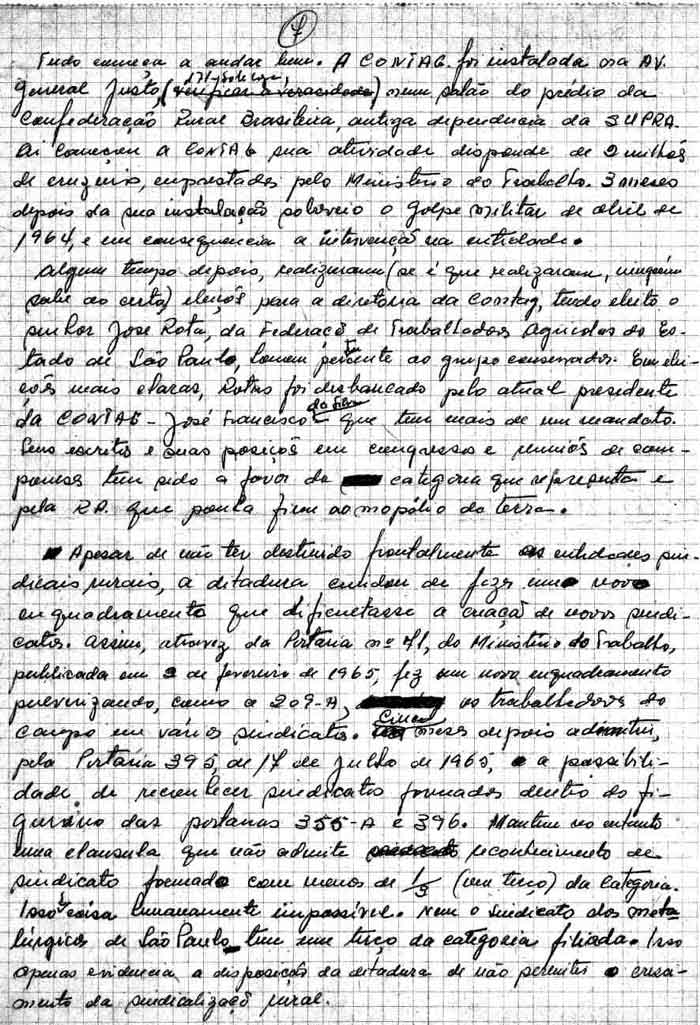 7
Tudo começa a andar bem. A CONTAG foi instalada na AV.
General Justo, (verificar a veracidade) num salão do prédio da
Confederação Rural Brasileira, antiga dependencia da SUPRA.
Aí começou a CONTAG sua atividade dispondo de 2 milhões
de cruzeiros, emprestados pelo Ministério do Trabalho. 3 meses
depois da sua instalação sobreveio o golpe militar de abril de
1964, e em consequencia a intervenção na entidade.
Algum tempo depois, realizaram (se é que realizaram, ninguém
sabe ao certo) eleições para a diretoria da Contag, tendo eleito o
senhor José Rota, da Federação de Trabalhadores Agricolas do Es-
tado de São Paulo, homem pertencente ao grupo conservador. Em elei-
ções mais claras, Rotas foi desbancado pelo atual presidente
da CONTAG - José Francisco da Silva que tem mais de um mandato.
Seus escritos e suas posições em congressos e reuniões de cam-
poneses tem sido a favor da categoria que representa e
pela RA. que ponha fim ao monopólio da terra.
Apesar de não ter destruido frontalmente as entidades sin-
dicais rurais, a ditadura cuidou de fazer um novo
enquadramento que dificultasse a criação de novos sindi-
catos. Assim, atravez da Portaria nº 71, do Ministério do Trabalho,
publicada em 2 de fevereiro de 1965, fez um novo enquadramento
pulverizando, como a 209-A, os trabalhadores do
campo em vários sindicatos. Cinco meses depois admitiu,
pela Portaria 395, de 17 de julho de 1965, a possibili-
dade de reconhecer sindicatos formados dentro do fi-
gurino das portarias 355-A e 396. Manteve no entanto
uma clausula que não admite reconhecimento de
sindicato formado com menos de 1/3 (um terço) da categoria.
Isso é coisa humanamente impossível. Nem o Sindicato dos meta-
lúrgicos de São Paulo tem um terço da categoria filiada. Isso
apenas evidencia a disposição da ditadura de não permitir o cresci-
mento da sindicalização rural.